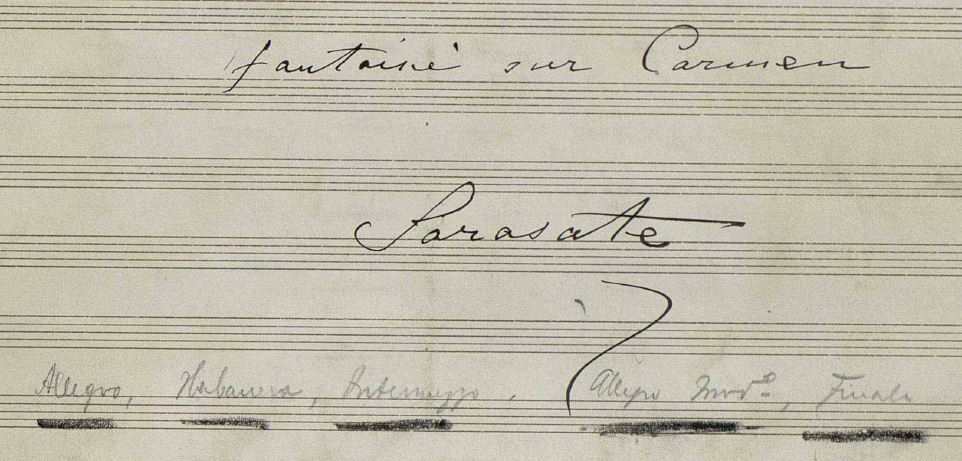 fantaisie sur Carmen
Sarasate
Allegro, Habanera, Intermezzo, Allegro Modo, Finale